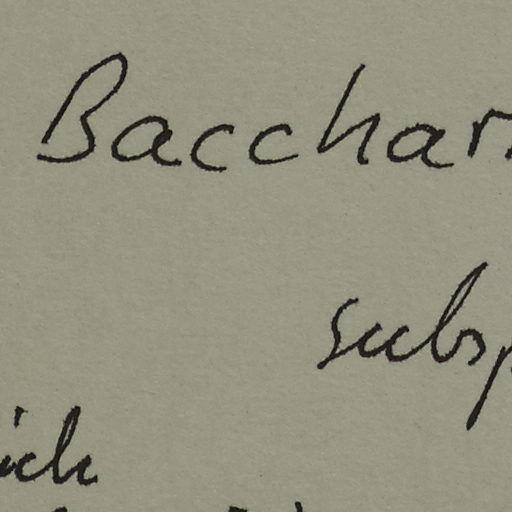 Bacchar
subsp
ich